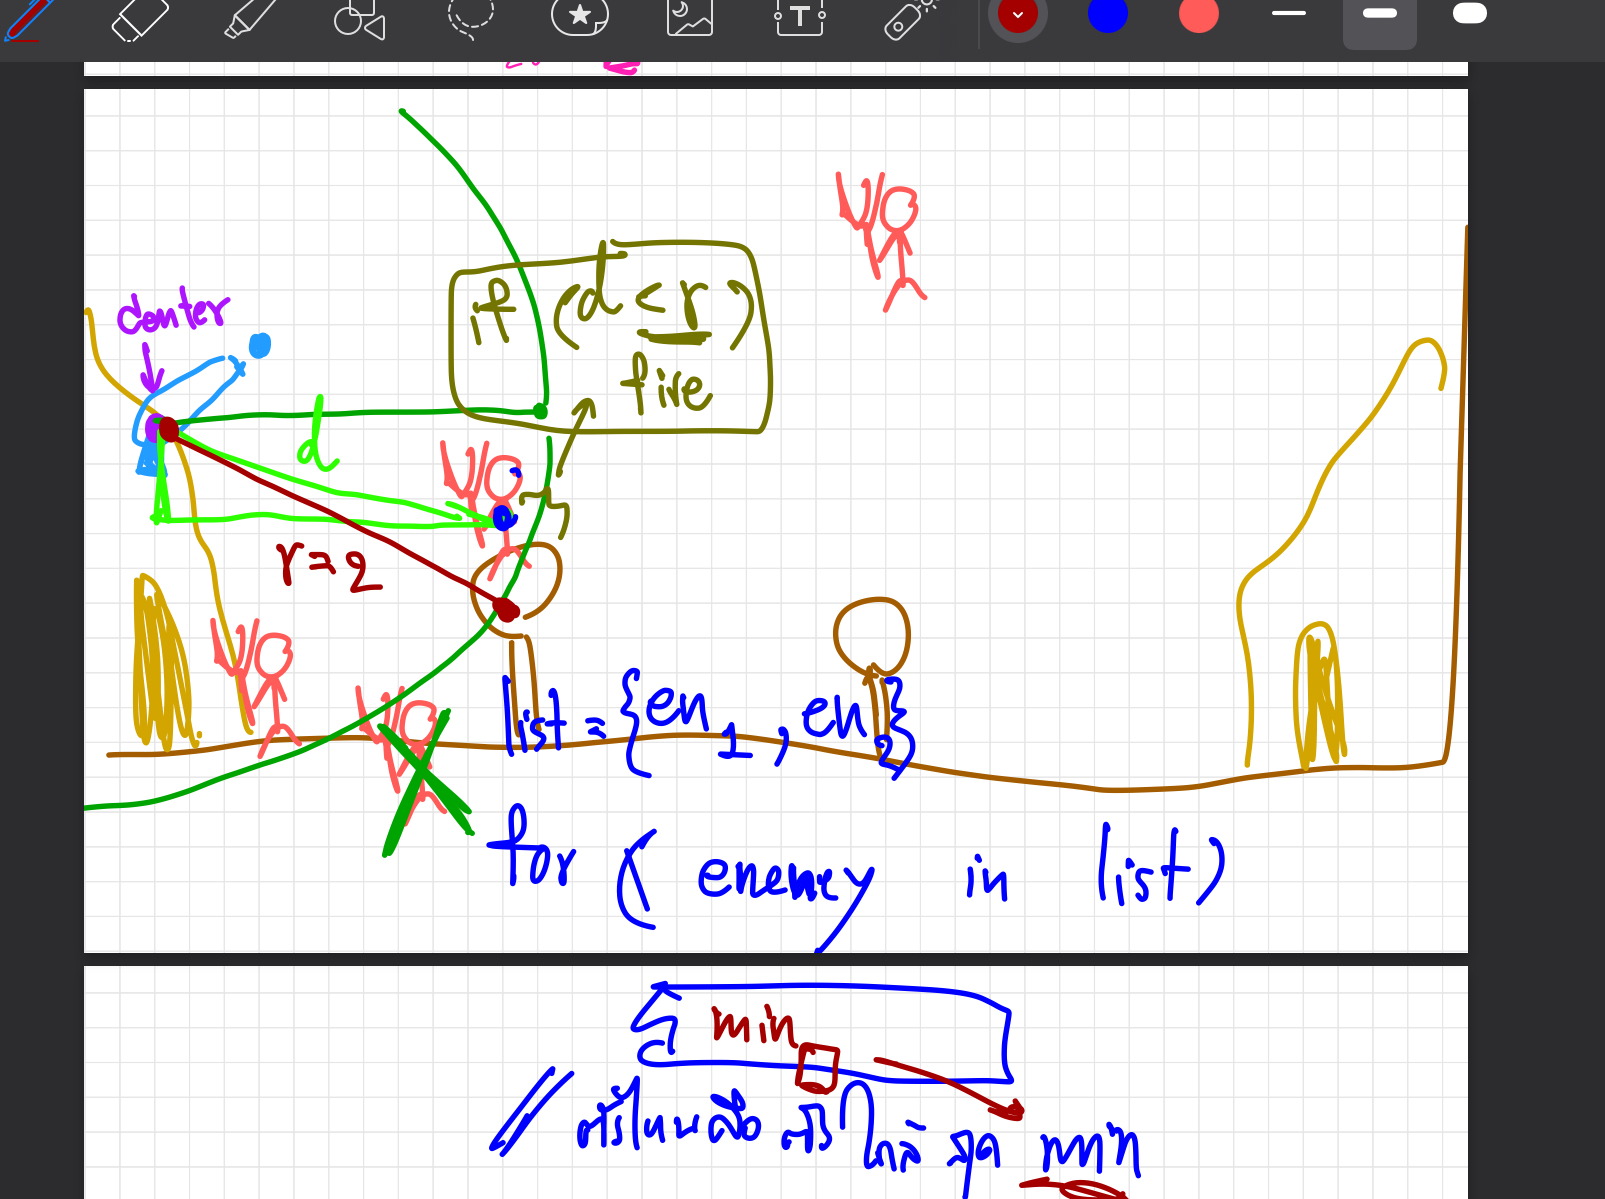 center
if (d < r)
fire
d
r=2
list = {en1, en}
for ( enemy in list)
min
// ตัวไหนคือ ตัวใกล้สุด min